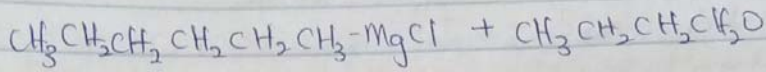 CH₃CH₂CH₂CH₂CH₂CH₃-MgCl + CH₃CH₂CH₂CH₂O